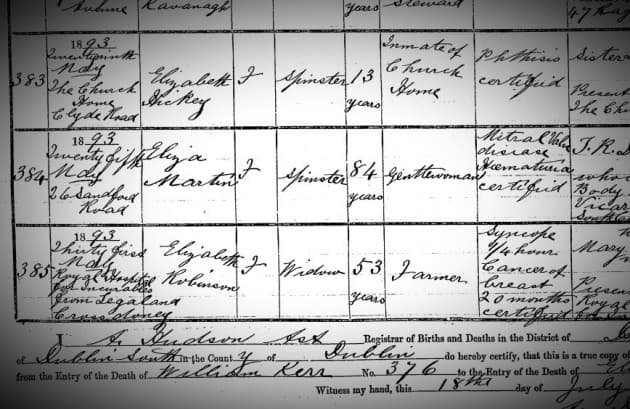 Kavanagh years Steward
47
383 1893 Twentyninth May The Church Home Clyde Road Elizabeth Hickey F Spinster 13 years Inmate of Church Home Phthisis certified Sister
Present
The
384 1893 Twenty fifth May 26 Sandford Road Eliza Martin F Spinster 84 years Gentlewoman Mitral Valve disease Hematuria certified J. R.
who
Body
385 1893 Thirty first May Royal Hospital for Incurables from Legaland Crossdoney Elizabeth Robinson F Widow 53 years Farmer Syncope 1/4 hour Cancer of breast 20 months certified Mary
Present
Royal
I A. Hudson Asst Registrar of Births and Deaths in the District of
of Dublin South in the County of Dublin do hereby certify, that this is a true copy of
from the Entry of the Death of William Kerr No. 376 to the Entry of the Death of
Witness my hand, this 18th day of July